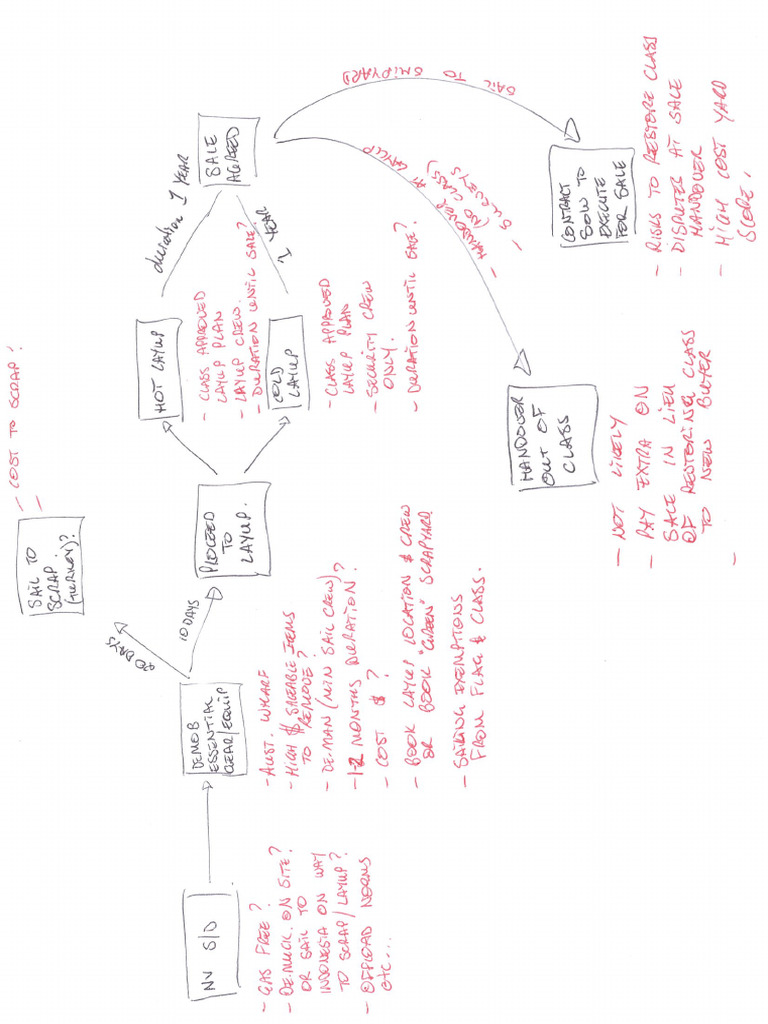 NV S/D
- GAS FREE?
- DEMUCK. ON SITE?
OR SAIL TO
INDONESIA ON WAY
TO SCRAP/LAYUP?
- OFFLOAD NORMS
etc...
DEMOB
ESSENTIAL
CLEAR/EQUIP
- AUST. WHARF
- HIGH $ SALEABLE ITEMS
TO REMOVE?
- DE-MAN (MIN SAIL CREW)?
- 1-2 MONTHS DURATION?
- COST $?
- BOOK LAYUP LOCATION & CREW
OR BOOK "GREEN" SCRAPYARD.
- SAILING EXEMPTIONS
FROM FLAG & CLASS.
20 DAYS
10 DAYS
SAIL TO
SCRAP.
(TURKEY)?
- COST TO SCRAP?
-
PROCEED
TO
LAYUP.
HOT LAYUP
- CLASS APPROVED
LAYUP PLAN
- LAYUP CREW.
- DURATION UNTIL SALE?
COLD
LAYUP
- CLASS APPROVED
LAYUP PLAN
- SECURITY CREW
ONLY.
- DURATION UNTIL SALE?
duration 1 YEAR
1 YEAR
SALE
AGREED
SAIL TO
SHIPYARD
- HANDOVER AT LAYUP
(NO CLASS)
- SURVEYS
HANDOVER
OUT OF
CLASS
- NOT LIKELY
- PAY EXTRA ON
SALE IN LIEU
OF RESTORING CLASS
TO NEW BUYER
-
CONTRACT
SOW TO
EXECUTE
FOR SALE
- RISKS TO RESTORE CLASS
- DISPUTES AT SALE
HANDOVER
- HIGH COST YARD
SCOPE.